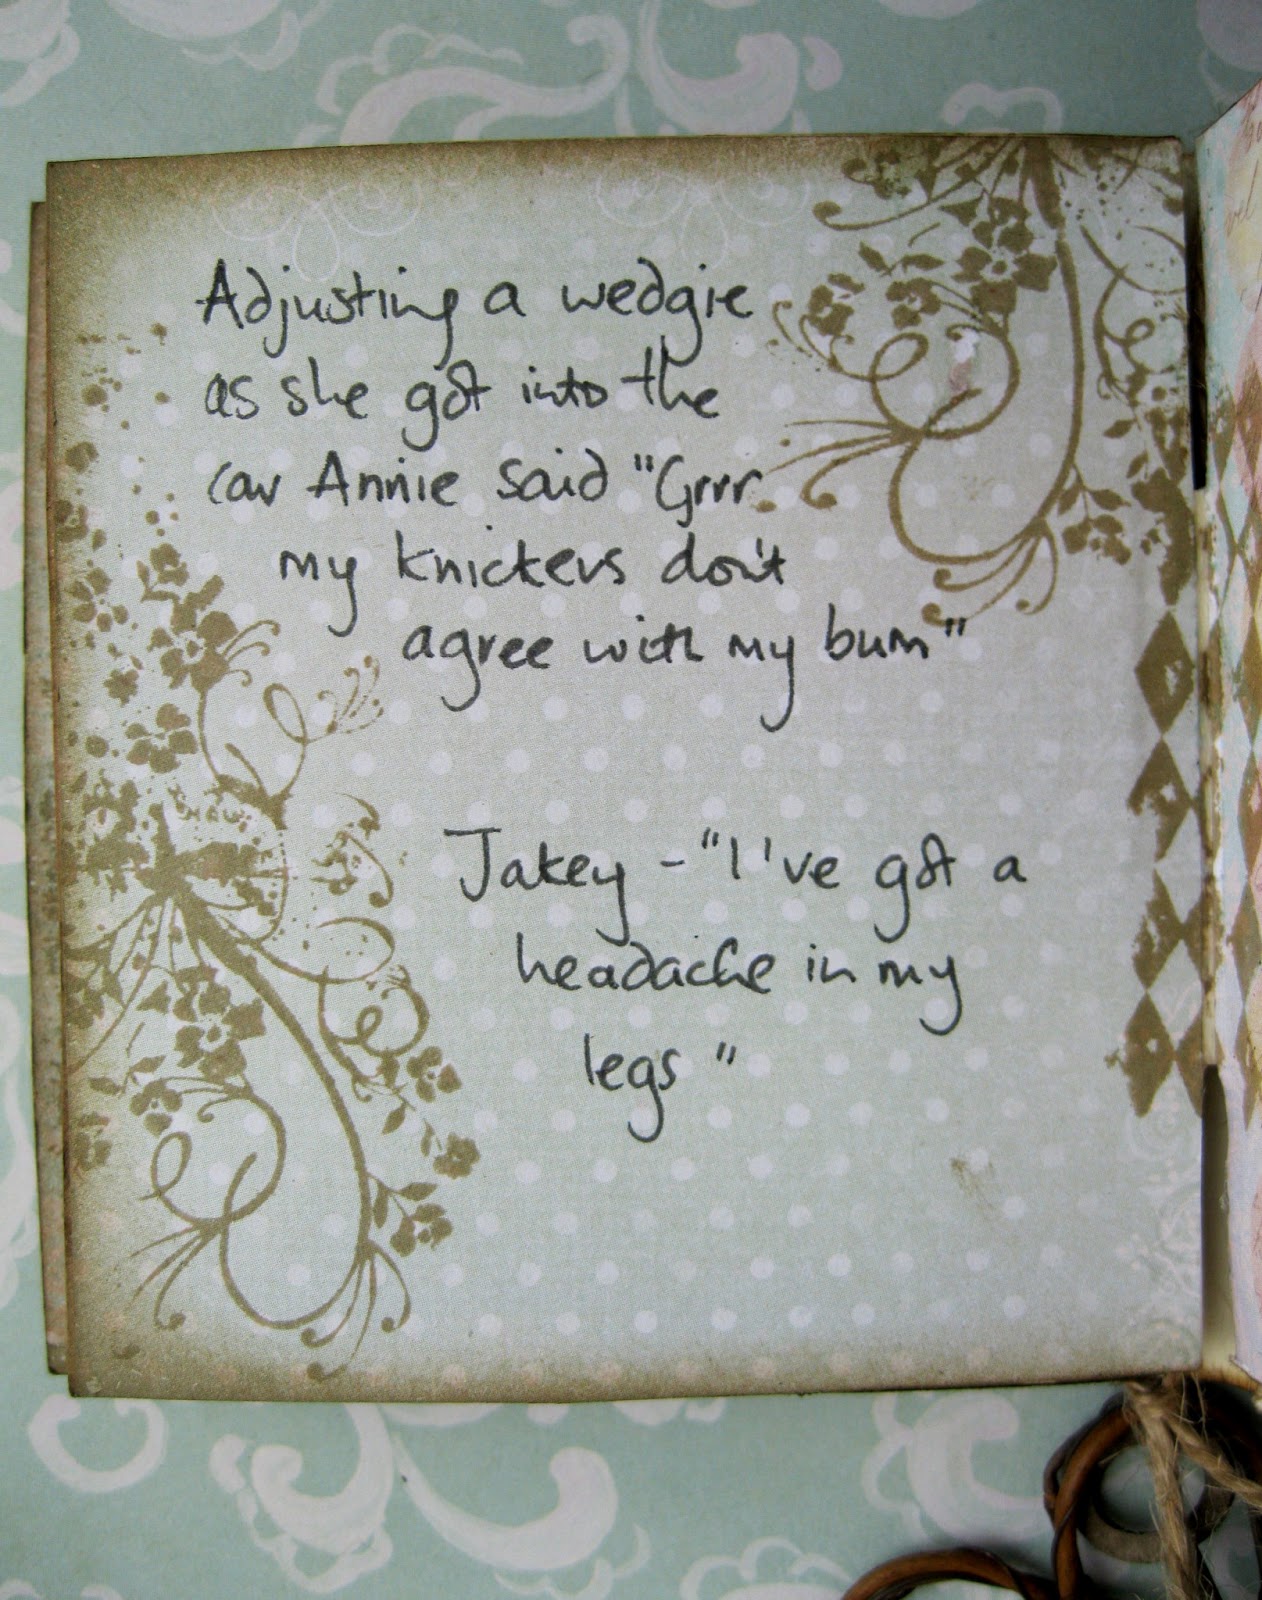 Adjusting a wedgie
as she got into the
car Annie said "Grrr
my knickers don't
agree with my bum"
Jakey - "I've got a
headache in my
legs"